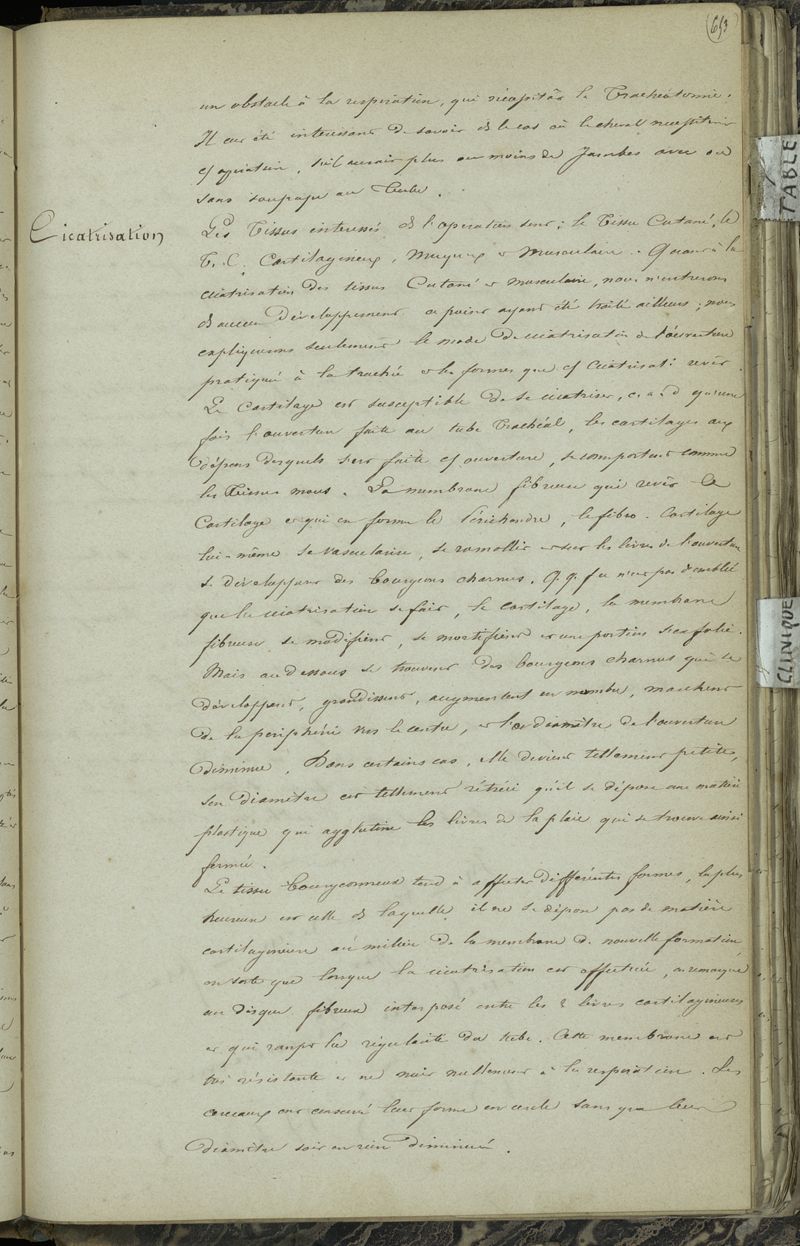 653
un obstacle à la respiration, qui nécessitât la Trachéotomie.
Il eut été intéressant de savoir ds le cas où le cheval necessiterait
cs opération, s'il aurait plus ou moins de jambes avec ou
sans soupape au tube.
Cicatrisation
Les Tissus interessés ds l'operation sont: le Tissu Cutané, le
T. C. Cartilagineux, Muqueux et Musculaire. Quant à la
cicatrisation des tissus Cutané et musculaire, nous n'entrerons
ds aucun développement ce point ayant été traité ailleurs; nous
expliquerons seulement le mode de cicatrisation de l'ouverture
pratiquée à la trachée et les formes que cs cicatrisat: revêt.
Le Cartilage est susceptible de se cicatriser, c. a. d qu'une
fois l'ouverture faite au tube Trachéal, les cartilages aux
dépens desquels s'est faite cs ouverture, se comportent comme
les Tissus mous. La membrane fibreuse qui revêt le
Cartilage et qui en forme le Périchondre, le fibro-Cartilage
lui-même se vascularise, se ramollit et sur les lèvres de l'ouverture
se développent des bourgeons charnus. Q.q. f ce n'est pas d'emblée
que la cicatrisation se fait, le cartilage, la membrane
fibreuse se modifient, se mortifient et une portion s'exfolie.
Mais au dessous se trouvent des bourgeons charnus qui se
développent, grandissent, augmentent en nombre, marchent
de la périphérie vers le centre, et le diamètre de l'ouverture
diminue. Dans certains cas, elle devient tellement petite,
son diamètre est tellement rétréci qu'il se dépose une matière
plastique qui agglutine les lèvres de la plaie qui se trouve ainsi
fermée.
Le tissu bourgeonneux tend à affecter différentes formes, la plus
heureuse est celle ds laquelle il ne se dépose pas de matière
cartilagineuse au milieu de la membrane de nouvelle formation,
en sorte que lorsque la cicatrisation est effectuée, on remarque
un disque fibreux interposé entre les 2 lèvres cartilagineuses
et qui rompt la régularité du tube. Cette membrane est
très résistante et ne nuit nullement à la respiration. Les
cerceaux ont conservé leur forme en cercle sans que leur
diamètre soit en rien diminué.
TABLE
CLINIQUE